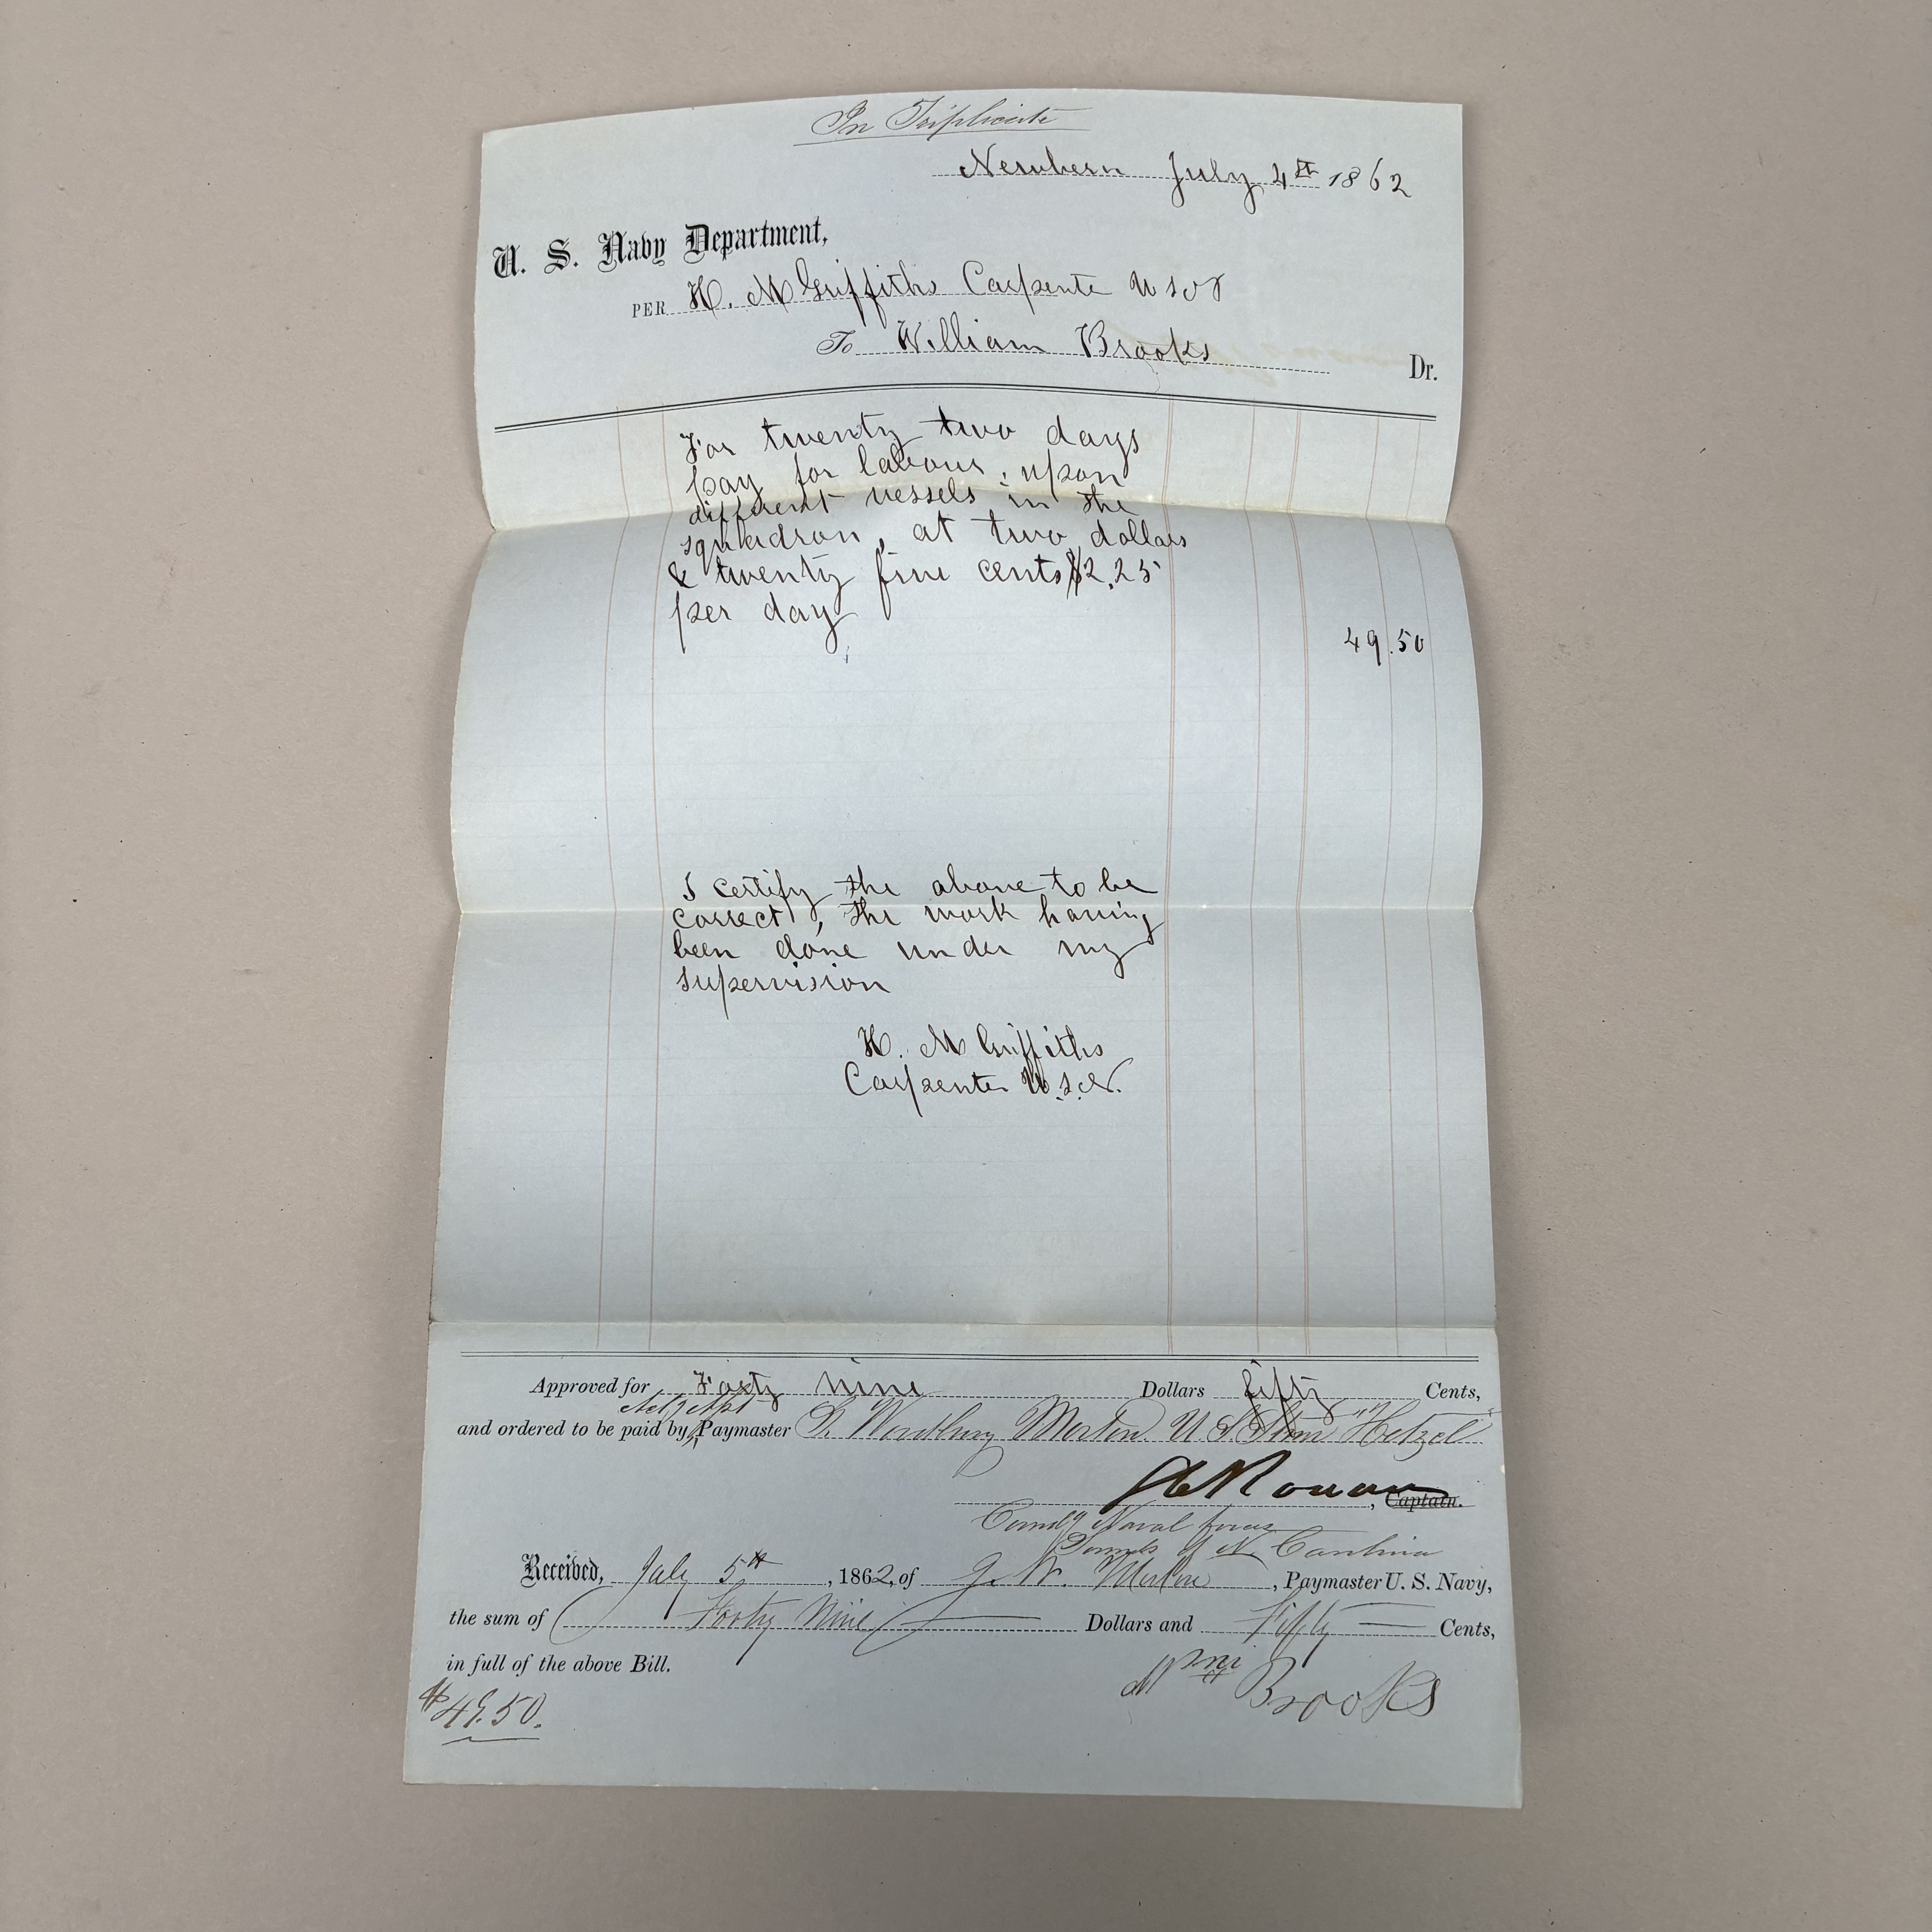 In Triplicate
Newbern July 4th 1862
U. S. Navy Department,
PER H. M Griffiths Carpente U S N
To William Brooks Dr.
For twenty two days
pay for labour, upon
different vessels in the
squadron, at two dollars
& twenty five cents $2.25
per day
49.50
I certify the above to be
correct, the work having
been done under my
supervision
H. M Griffiths
Carpenter U.S.N.
Approved for Forty nine Dollars fifty Cents,
and ordered to be paid by Paymaster G. Woodbury Morton U S Stmr "Hetzel"
S C Rowan, Captain.
Comdg Naval forces
Sounds of N. Carolina
Received, July 5th, 1862, of G. W. Morton, Paymaster U. S. Navy,
the sum of Forty Nine Dollars and Fifty Cents,
in full of the above Bill.
$49.50.
Wm Brooks